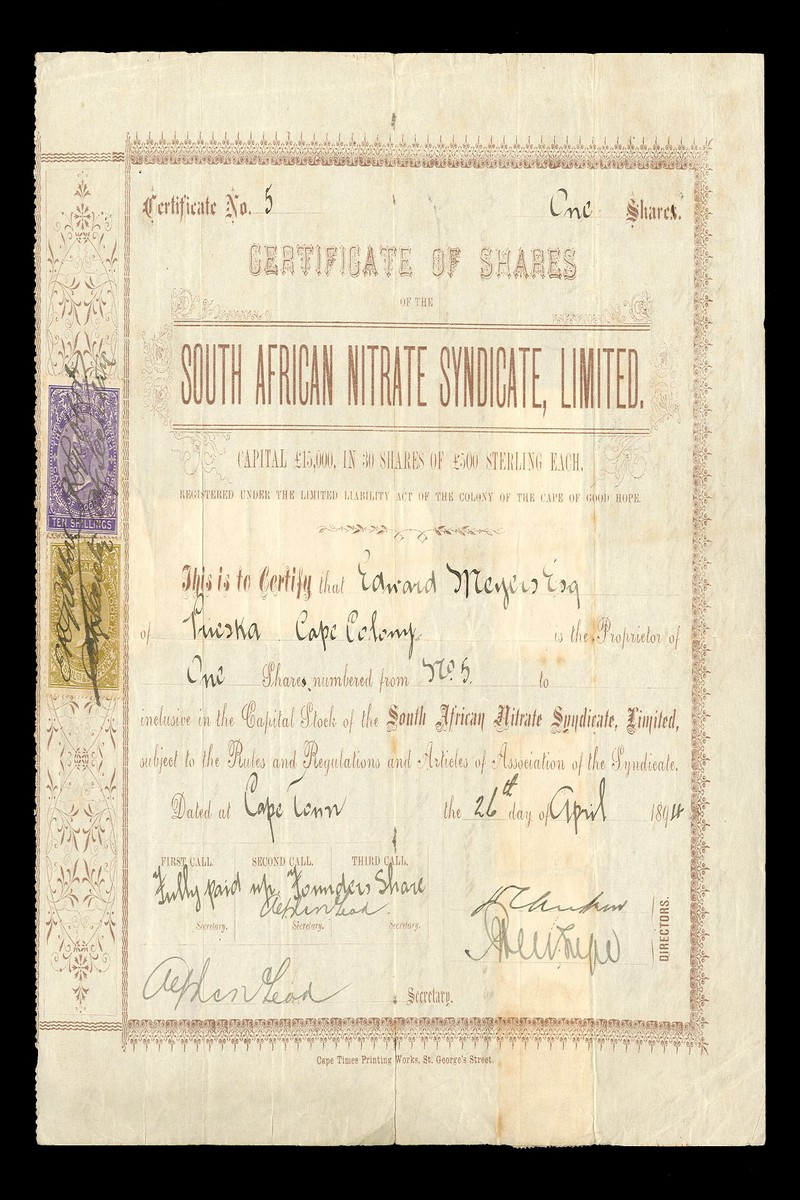 Certificate No. 5 One Shares.
CERTIFICATE OF SHARES
OF THE
SOUTH AFRICAN NITRATE SYNDICATE, LIMITED.
CAPITAL £15,000, IN 30 SHARES OF £500 STERLING EACH.
REGISTERED UNDER THE LIMITED LIABILITY ACT OF THE COLONY OF THE CAPE OF GOOD HOPE.
TEN SHILLINGS
This is to Certify that Edward Meyers Esq
of Prieska Cape Colony is the Proprietor of
One Shares, numbered from No. 5. to
inclusive in the Capital Stock of the South African Nitrate Syndicate, Limited,
subject to the Rules and Regulations and Articles of Association of the Syndicate.
Dated at Cape Town the 26th day of April 1894
FIRST CALL. SECOND CALL. THIRD CALL.
Fully paid up Founders Share
Secretary. Secretary. Secretary.
DIRECTORS.
Secretary.
Cape Times Printing Works, St. George's Street.